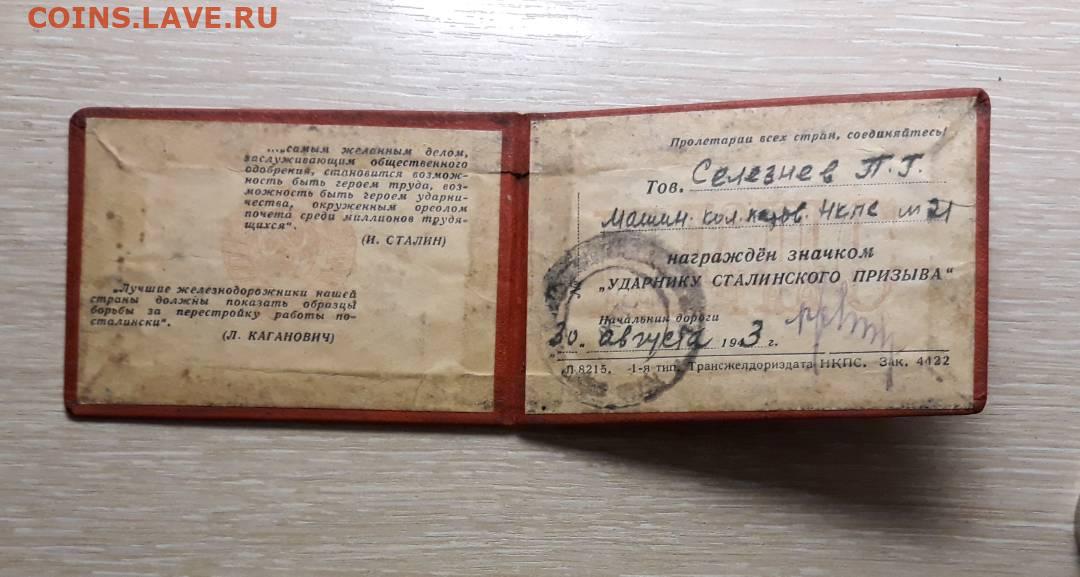 COINS.LAVE.RU
...„самым желанным делом,
заслуживающим общественного
одобрения, становится возмож-
ность быть героем труда, воз-
можность быть героем ударни-
чества, окруженным ореолом
почета среди миллионов трудя-
щихся“.
(И. СТАЛИН)
„Лучшие железнодорожники нашей
страны должны показать образцы
борьбы за перестройку работы по-
сталински“.
(Л. КАГАНОВИЧ)
Пролетарии всех стран, соединяйтесь!
Тов. Селезнев П. Г.
Машин. кол. НКПС № 21
награждён значком
„УДАРНИКУ СТАЛИНСКОГО ПРИЗЫВА“
№
Начальник дороги
„30„ августа 1943 г.
Л 8215. 1-я тип. Трансжелдориздата НКПС. Зак. 4422